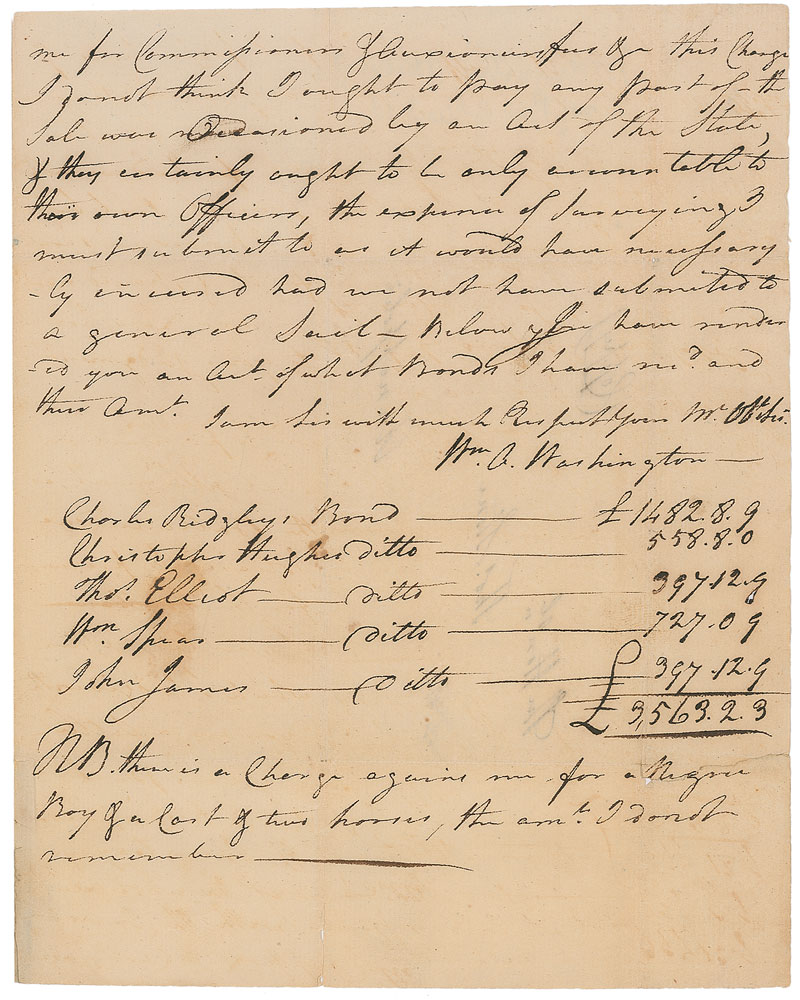 me for Commissioners & Auxioneirs fees &c this Charge
I do not think I ought to pay any part of - the
Sale was Occasioned by an Act of the State,
& they certainly ought to be only accountable to
their own Officers, the expence of Surveying I
must submit to as it would have necessary
-ly incured had we not have submited to
a general Sail - Below you have render
-ed you an Act. of what Bonds I have recd. and
their Amt. I am Sir with much Respect Your Mt. Obt. Sr.
Wm. A. Washington —
Charles Ridgleys Bond — £1482.8.9
Christopher Hughes ditto — 558.8.0
Thos. Elliot — ditto — 397.12.9
Wm Spear — ditto — 727.0 9
John James — Ditto — £ 397.12.9
£ 3,563.2.3
NB. there is a Charge agains me for a Negroe
Boy & a Cart & two horses, the amt. I do not
remember —